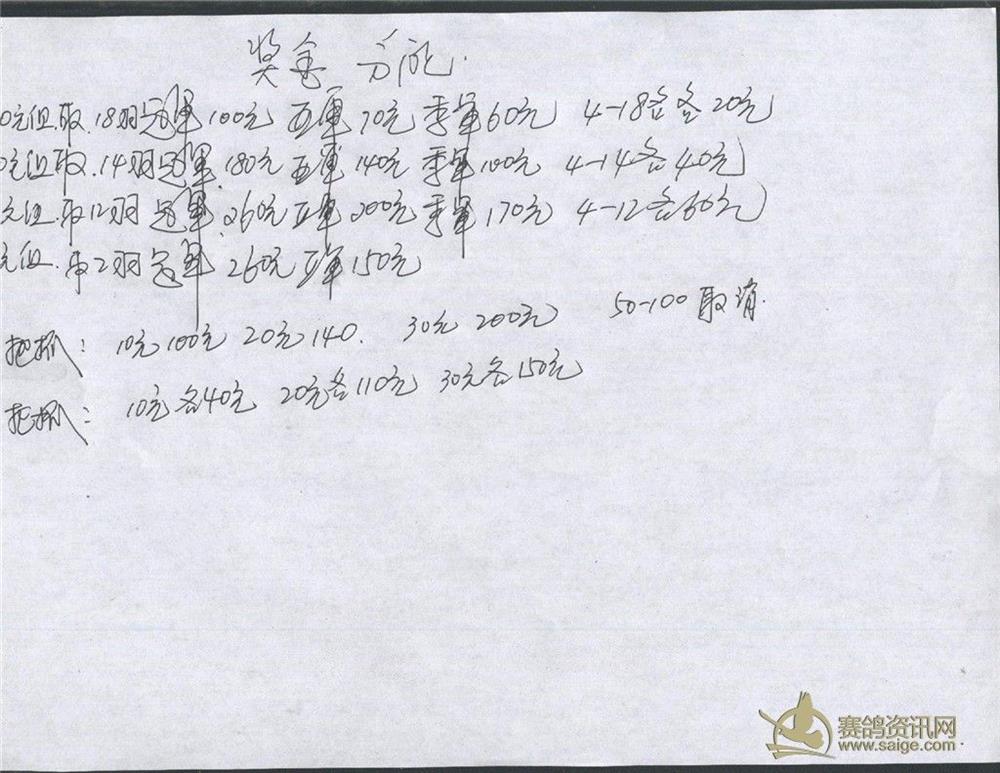 奖金分配.
0元组.取.18羽冠军100元 亚军70元 季军60元 4-18名各20元
0元组取.14羽冠军.180元 亚军140元 季军100元 4-14各40元
元组.取12羽冠军.260元 亚军200元 季军170元 4-12各60元
元组.取2羽冠军260元 亚军150元
把抓: 10元100元 20元140. 30元200元 50-100取消.
把抓: 10元各40元 20元各110元 30元各150元
赛鸽资讯网
www.saige.com